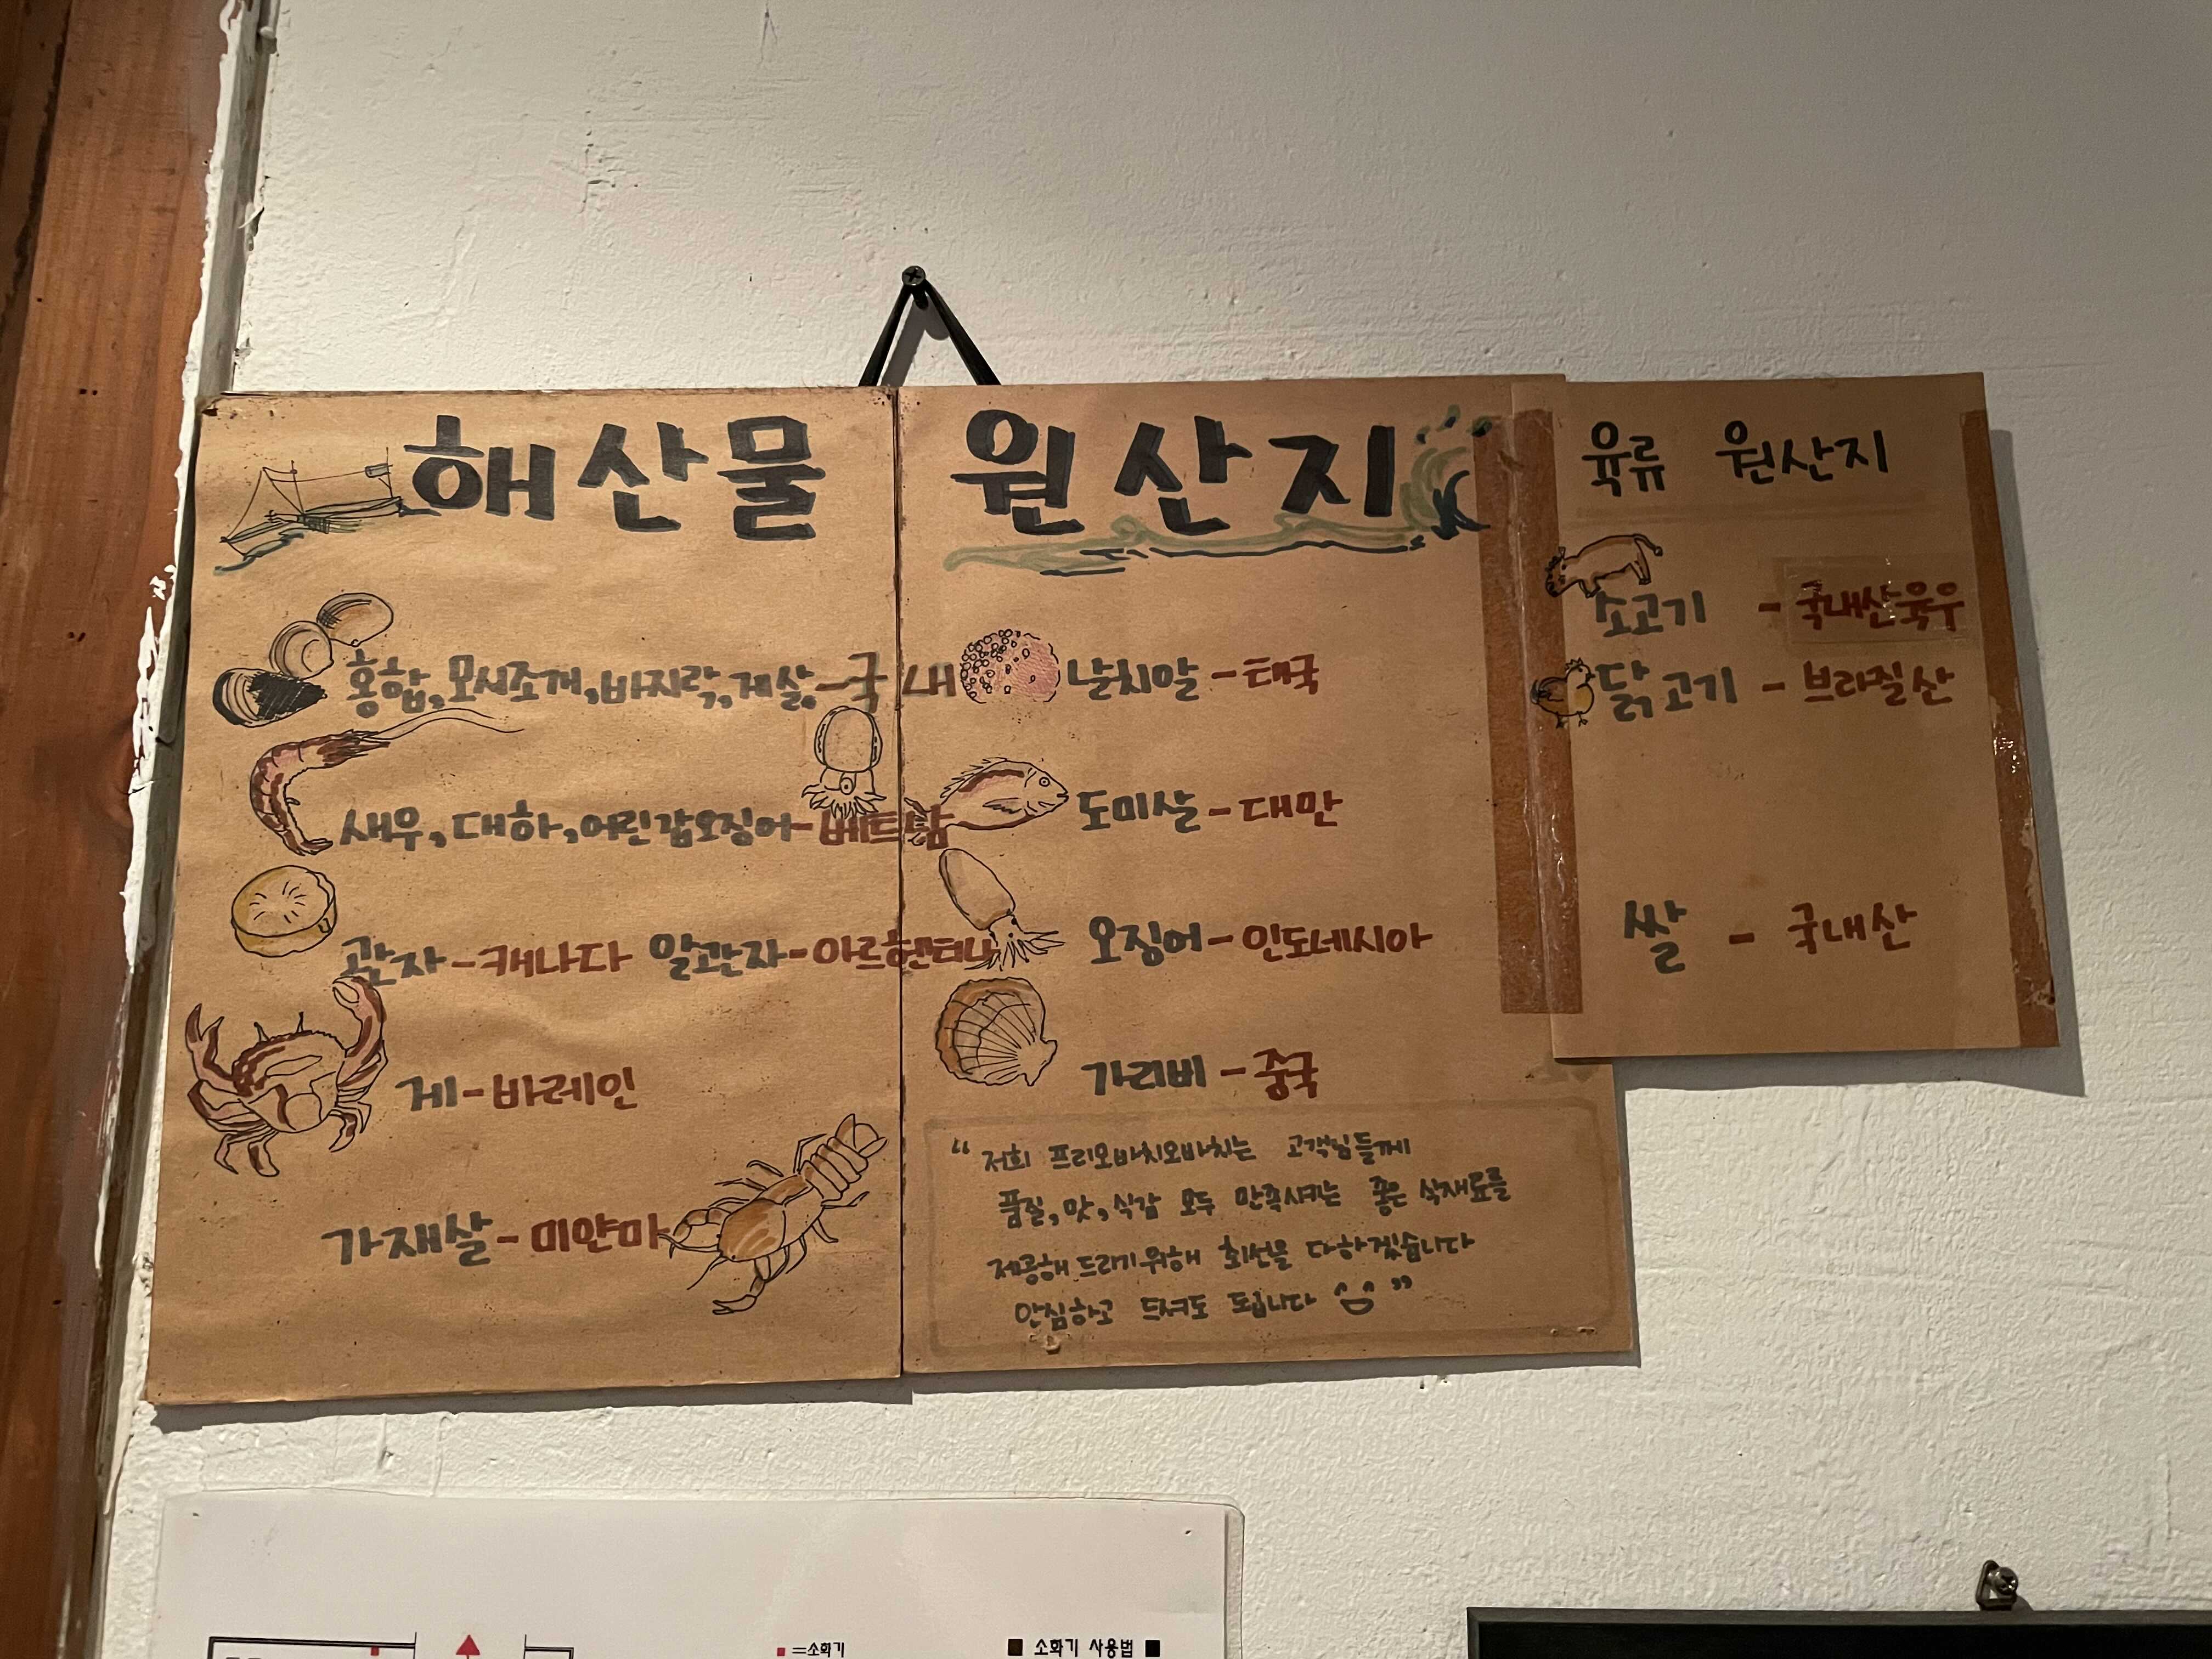 해산물 원산지
홍합, 모시조개, 바지락, 게살 - 국내
새우, 대하, 어린갑오징어 - 베트남
관자 - 캐나다 알관자 - 아르헨티나
게 - 바레인
가재살 - 미얀마
날치알 - 태국
도미살 - 대만
오징어 - 인도네시아
가리비 - 중국
“ 저희 프리오바치오바치는 고객님들께
품질, 맛, 식감 모두 만족시키는 좋은 식재료를
제공해 드리기위해 최선을 다하겠습니다
안심하고 드셔도 됩니다 ”
육류 원산지
소고기 - 국내산육우
닭고기 - 브라질산
쌀 - 국내산
=소화기
■ 소화기 사용법 ■